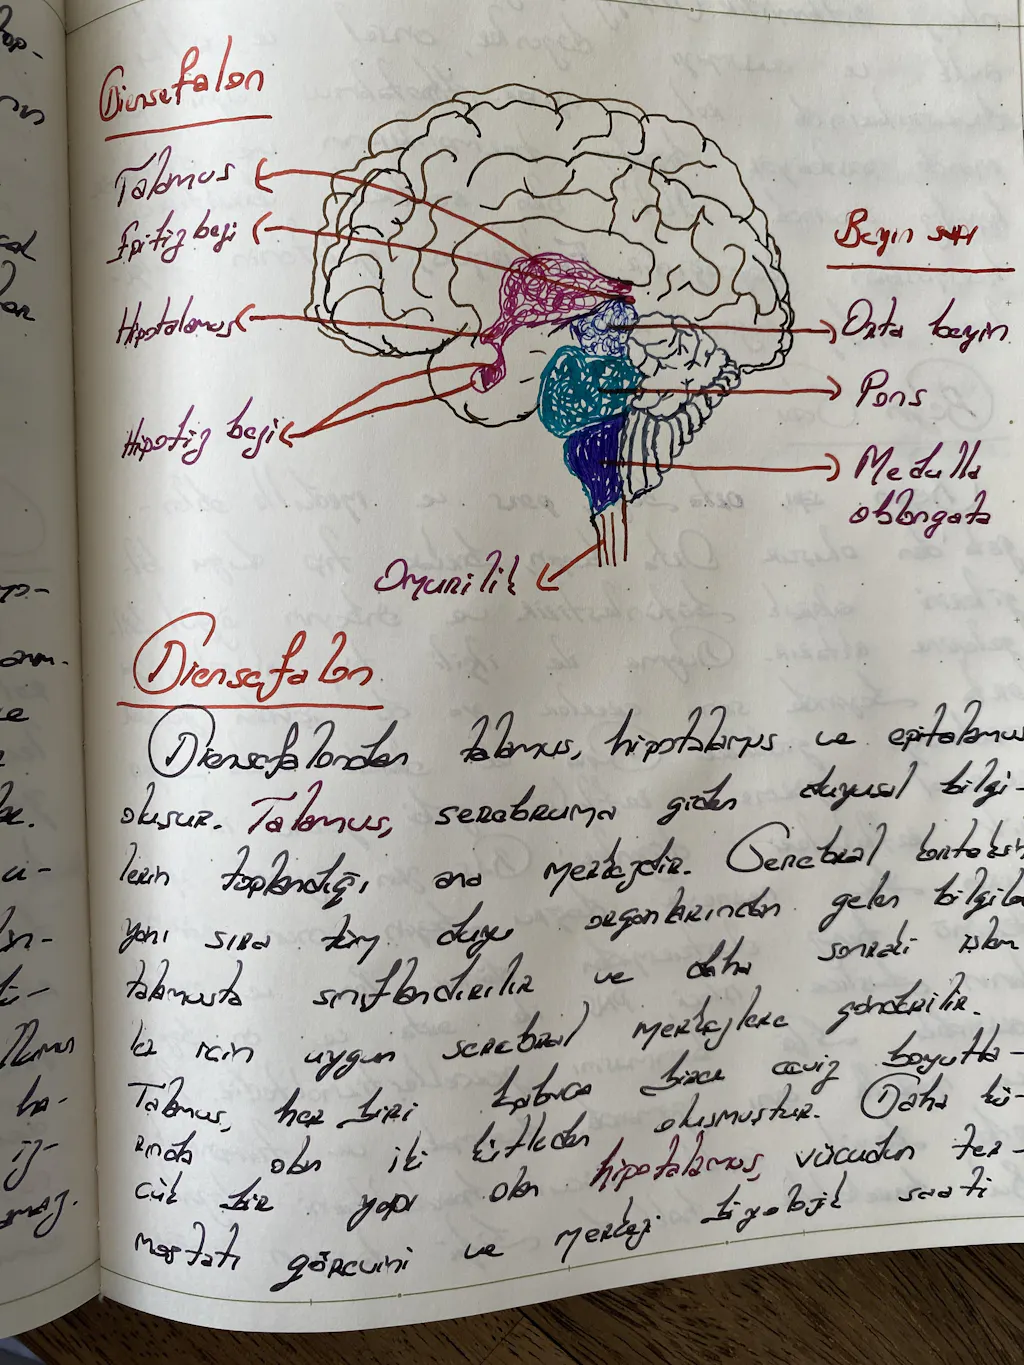 Diensefalon
Talamus
Epifiz bezi
Hipotalamus
Hipofiz bezi
Beyin sapı
Orta beyin
Pons
Medulla
oblongata
Omurilik
Diensefalon
Diensefalondan talamus, hipotalamus ve epitalamus
oluşur. Talamus, serebruma giden duyusal bilgi-
lerin toplandığı ana merkezdir. Cerebral korteksin
yanı sıra tüm duyu organlarından gelen bilgiler
talamusta sınıflandırılır ve daha sonraki işlem
ler için uygun serebral merkezlere gönderilir.
Talamus, her biri kabaca birer ceviz boyutla-
rında olan iki kütleden oluşmuştur. Daha kü-
çük bir yapı olan hipotalamus, vücudun ter-
mostatı görevini ve merkezi biyolojik saati